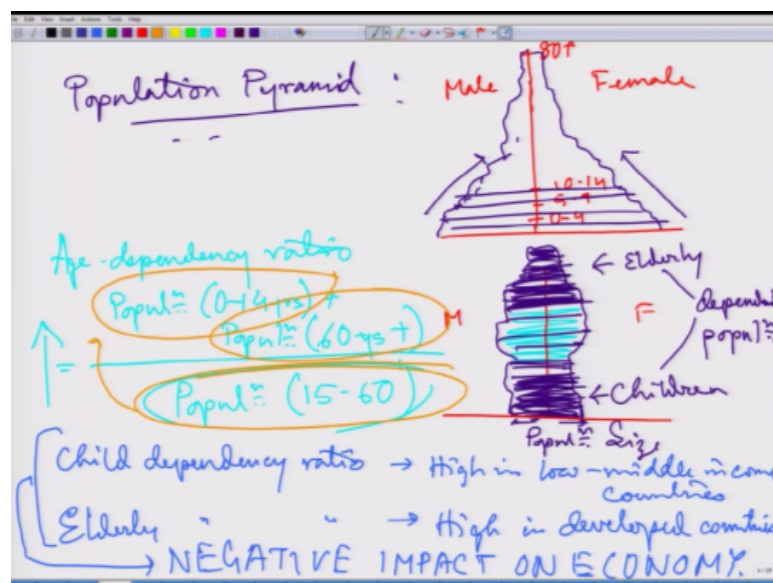 Population Pyramid :
Male
Female
80↑
10-14
5-9
0-4
Age-dependency ratio
Popul=ⁿ (0-14 yrs) +
Popul=ⁿ (60-ys +)
=
Popul=ⁿ (15-60)
M
F
← Elderly
← Children
popl=ⁿ
Popul=ⁿ Size
Child dependency ratio → High in low-middle income
countries
Elderly " " → High in developed countries
→ NEGATIVE IMPACT ON ECONOMY.